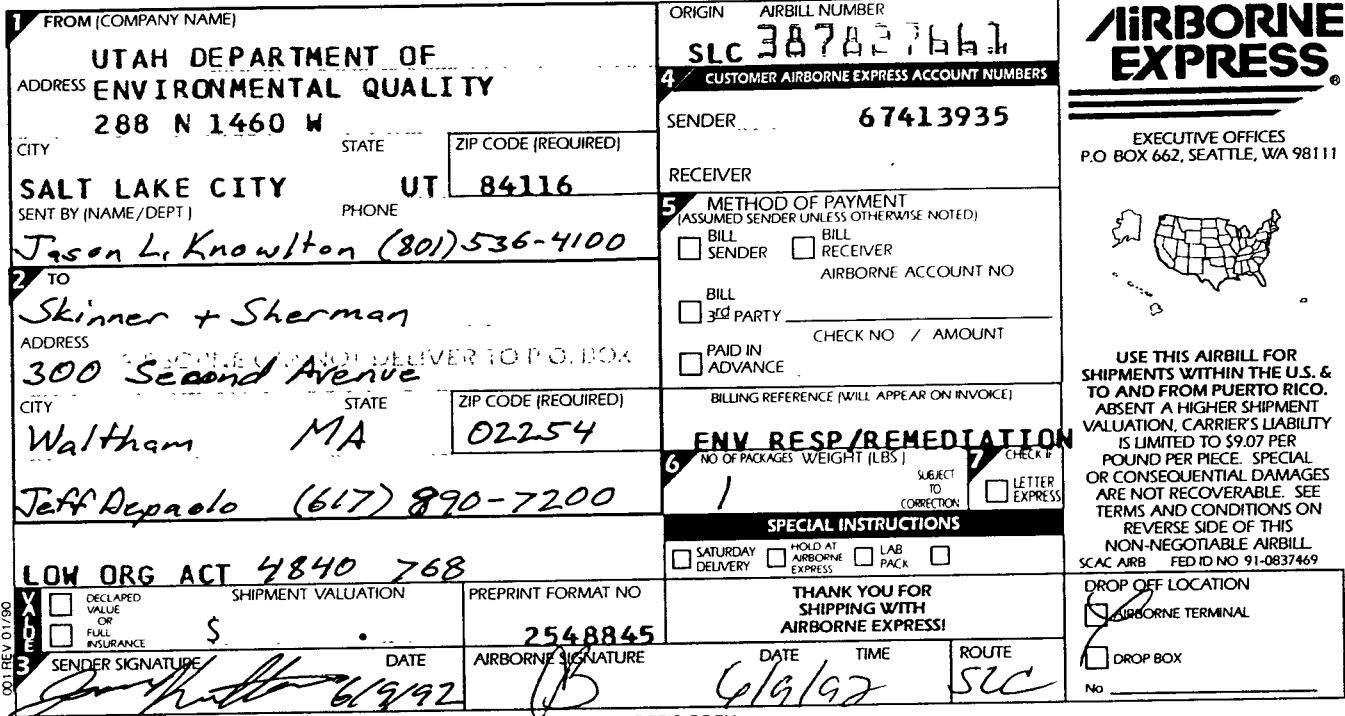 1 FROM (COMPANY NAME)
UTAH DEPARTMENT OF
ADDRESS ENVIRONMENTAL QUALITY
288 N 1460 W
CITY STATE ZIP CODE (REQUIRED)
SALT LAKE CITY UT 84116
SENT BY (NAME/DEPT) PHONE
Jason L. Knowlton (801) 536-4100
2 TO
Skinner + Sherman
ADDRESS
NOT DELIVER TO P.O. BOX
300 Second Avenue
CITY STATE ZIP CODE (REQUIRED)
Waltham MA 02254
Jeff Depaolo (617) 890-7200
LOW ORG ACT 4840 768
VALUE
DECLARED VALUE OR FULL INSURANCE
SHIPMENT VALUATION
$ .
PREPRINT FORMAT NO
2548845
3 SENDER SIGNATURE DATE
6/9/92
001 REV 01/90
ORIGIN AIRBILL NUMBER
SLC 387827661
4 CUSTOMER AIRBORNE EXPRESS ACCOUNT NUMBERS
SENDER 67413935
RECEIVER
5 METHOD OF PAYMENT
(ASSUMED SENDER UNLESS OTHERWISE NOTED)
BILL SENDER BILL RECEIVER
AIRBORNE ACCOUNT NO
BILL 3rd PARTY
CHECK NO / AMOUNT
PAID IN ADVANCE
BILLING REFERENCE (WILL APPEAR ON INVOICE)
ENV RESP/REMEDIATION
6 NO OF PACKAGES WEIGHT (LBS)
1
SUBJECT TO CORRECTION
7 CHECK IF
LETTER EXPRESS
SPECIAL INSTRUCTIONS
SATURDAY DELIVERY HOLD AT AIRBORNE EXPRESS LAB PACK
THANK YOU FOR
SHIPPING WITH
AIRBORNE EXPRESS!
AIRBORNE SIGNATURE DATE TIME ROUTE
6/9/92 SLC
AIRBORNE
EXPRESS®
EXECUTIVE OFFICES
P.O BOX 662, SEATTLE, WA 98111
USE THIS AIRBILL FOR
SHIPMENTS WITHIN THE U.S. &
TO AND FROM PUERTO RICO.
ABSENT A HIGHER SHIPMENT
VALUATION, CARRIER'S LIABILITY
IS LIMITED TO $9.07 PER
POUND PER PIECE. SPECIAL
OR CONSEQUENTIAL DAMAGES
ARE NOT RECOVERABLE. SEE
TERMS AND CONDITIONS ON
REVERSE SIDE OF THIS
NON-NEGOTIABLE AIRBILL
SCAC AIRB FED ID NO 91-0837469
DROP OFF LOCATION
AIRBORNE TERMINAL
DROP BOX
No